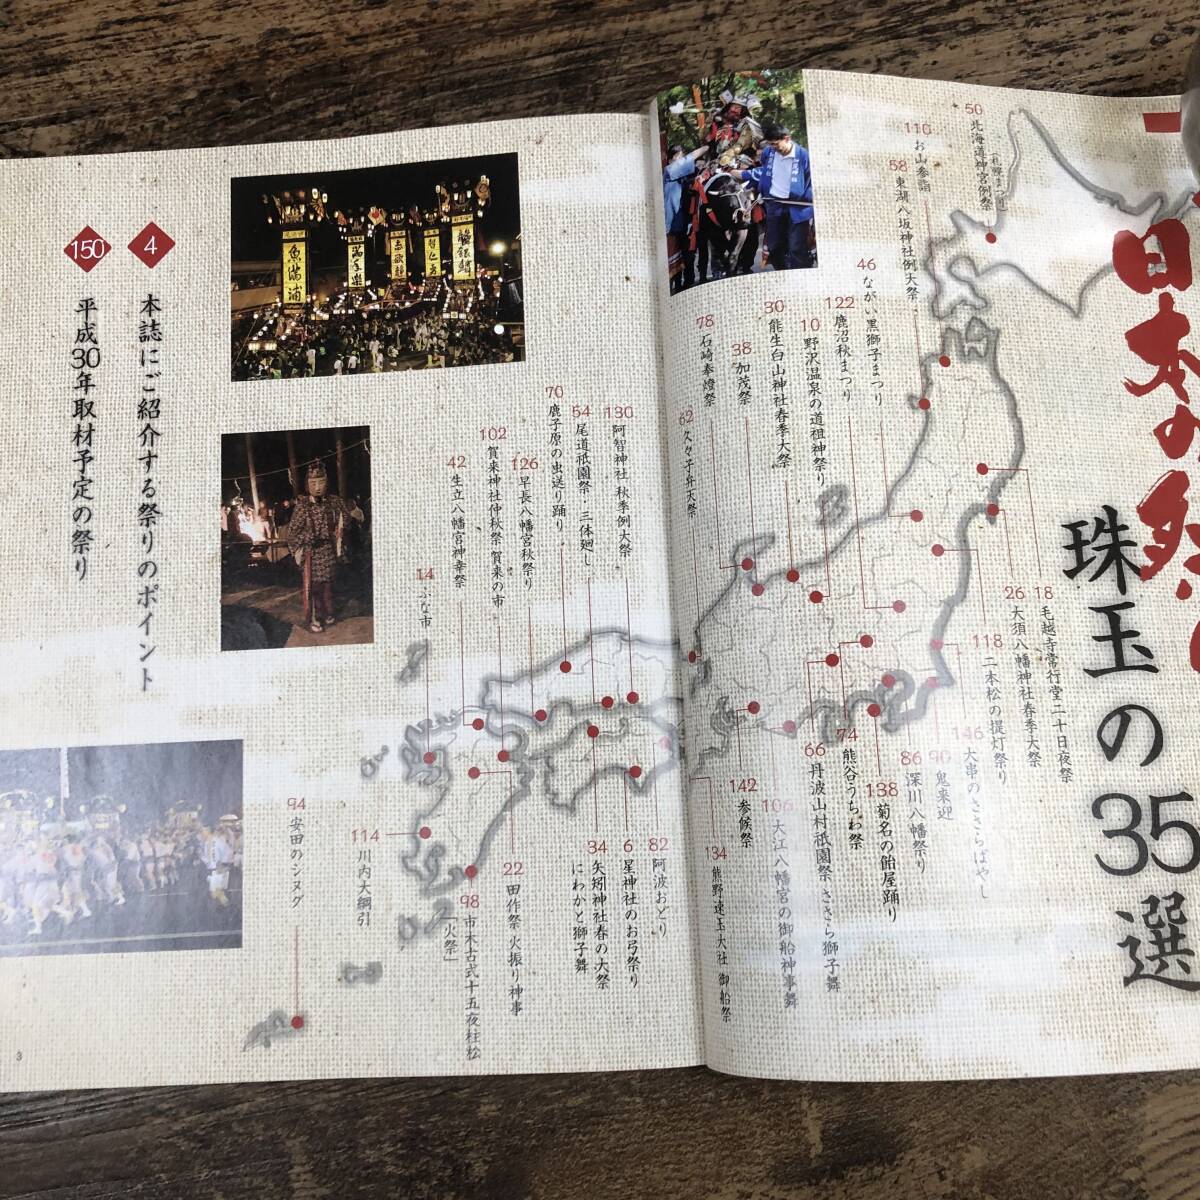 日本の祭り
珠玉の35選
50 北海道神宮例祭
(札幌まつり)
110 お山参詣
58 東湖八坂神社例大祭
46 ながい黒獅子まつり
122 鹿沼秋まつり
10 野沢温泉の道祖神祭り
30 能生白山神社春季大祭
38 加茂祭
78 石崎奉燈祭
62 久々子弁天祭
18 毛越寺常行堂二十日夜祭
26 大須八幡神社春季大祭
118 二本松の提灯祭り
146 大串のささらばやし
90 鬼来迎
86 深川八幡祭り
138 菊名の飴屋踊り
74 熊谷うちわ祭
66 丹波山村祇園祭 ささら獅子舞
106 大江八幡宮の御船神事舞
142 参候祭
134 熊野速玉大社 御船祭
130 阿智神社 秋季例大祭
54 尾道祇園祭・三体廻し
70 鹿子原の虫送り踊り
126 早長八幡宮秋祭り
102 賀来神社仲秋祭 賀来の市
42 生立八幡宮神幸祭
14 ふな市
82 阿波おどり
6 星神社のお弓祭り
34 矢矧神社春の大祭
にわかと獅子舞
22 田作祭 火振り神事
98 市木古式十五夜柱松
「火祭」
114 川内大綱引
94 安田のシヌグ
4 本誌にご紹介する祭りのポイント
150 平成30年取材予定の祭り
魚満浦
3